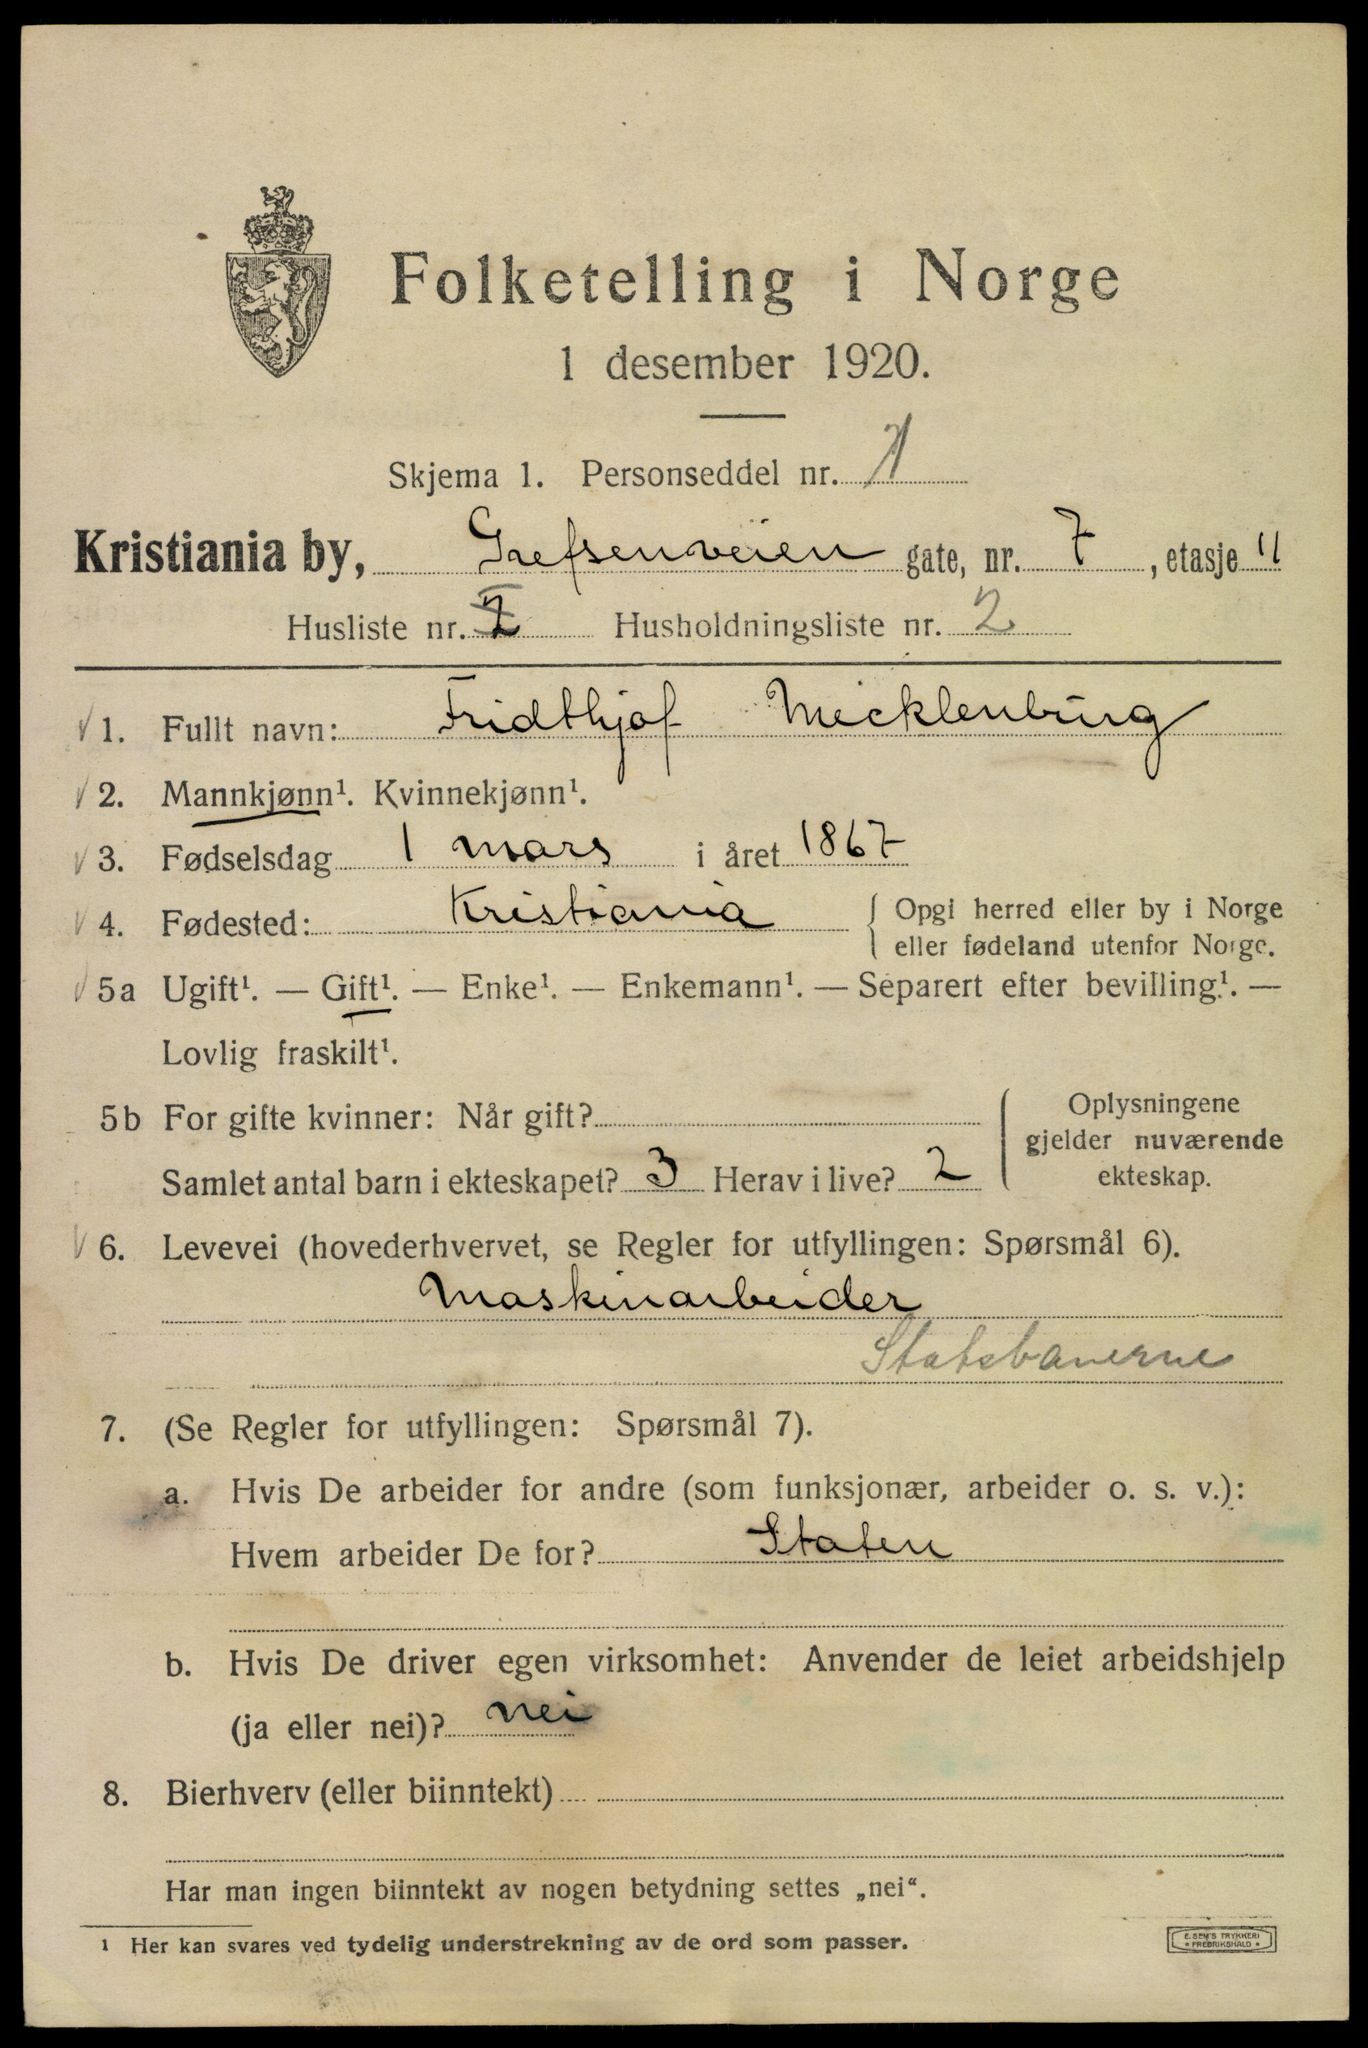 Folketelling i Norge
1 desember 1920.
Skjema 1. Personseddel nr. 1
Kristiania by, Grefsenveien gate, nr. 7, etasje 11
Husliste nr. 2 Husholdningsliste nr. 2
1. Fullt navn: Fridthjof Mecklenburg
2. Mannkjønn¹. Kvinnekjønn¹.
3. Fødselsdag 1 mars i året 1867
4. Fødested: Kristiania { Opgi herred eller by i Norge
eller fødeland utenfor Norge.
5a Ugift¹. — Gift¹. — Enke¹. — Enkemann¹. — Separert efter bevilling¹. —
Lovlig fraskilt¹.
5b For gifte kvinner: Når gift?
Samlet antal barn i ekteskapet? 3 Herav i live? 2
Oplysningene
gjelder nuværende
ekteskap.
6. Levevei (hovederhvervet, se Regler for utfyllingen: Spørsmål 6).
Maskinarbeider
Statsbanerne
7. (Se Regler for utfyllingen: Spørsmål 7).
a. Hvis De arbeider for andre (som funksjonær, arbeider o. s. v.):
Hvem arbeider De for? Staten
b. Hvis De driver egen virksomhet: Anvender de leiet arbeidshjelp
(ja eller nei)? nei
8. Bierhverv (eller biinntekt)
Har man ingen biinntekt av nogen betydning settes „nei“.
¹ Her kan svares ved tydelig understrekning av de ord som passer.
E. SEM'S TRYKKERI
FREDRIKSHALD